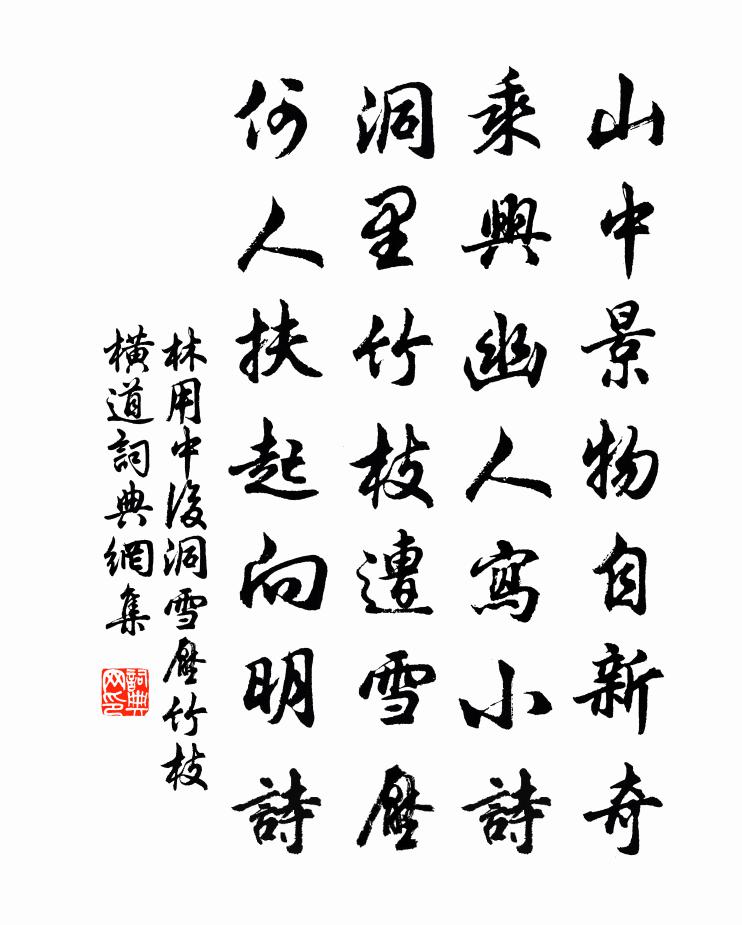 山中景物自新奇
乘興幽人寫小詩
洞里竹枝遭雪壓
何人扶起向明詩
林用中後洞雪壓竹枝
橫道詞典網集
詞典网印